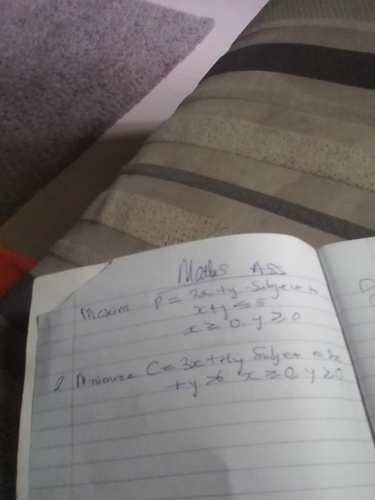 Maths Ass
Maxim P = 2x+y Subject to
x+y ≤ 5
x ≥ 0, y ≥ 0
2 Minimize C = 3x+4y Subject
+y ≥ 6 x ≥ 0, y ≥ 0